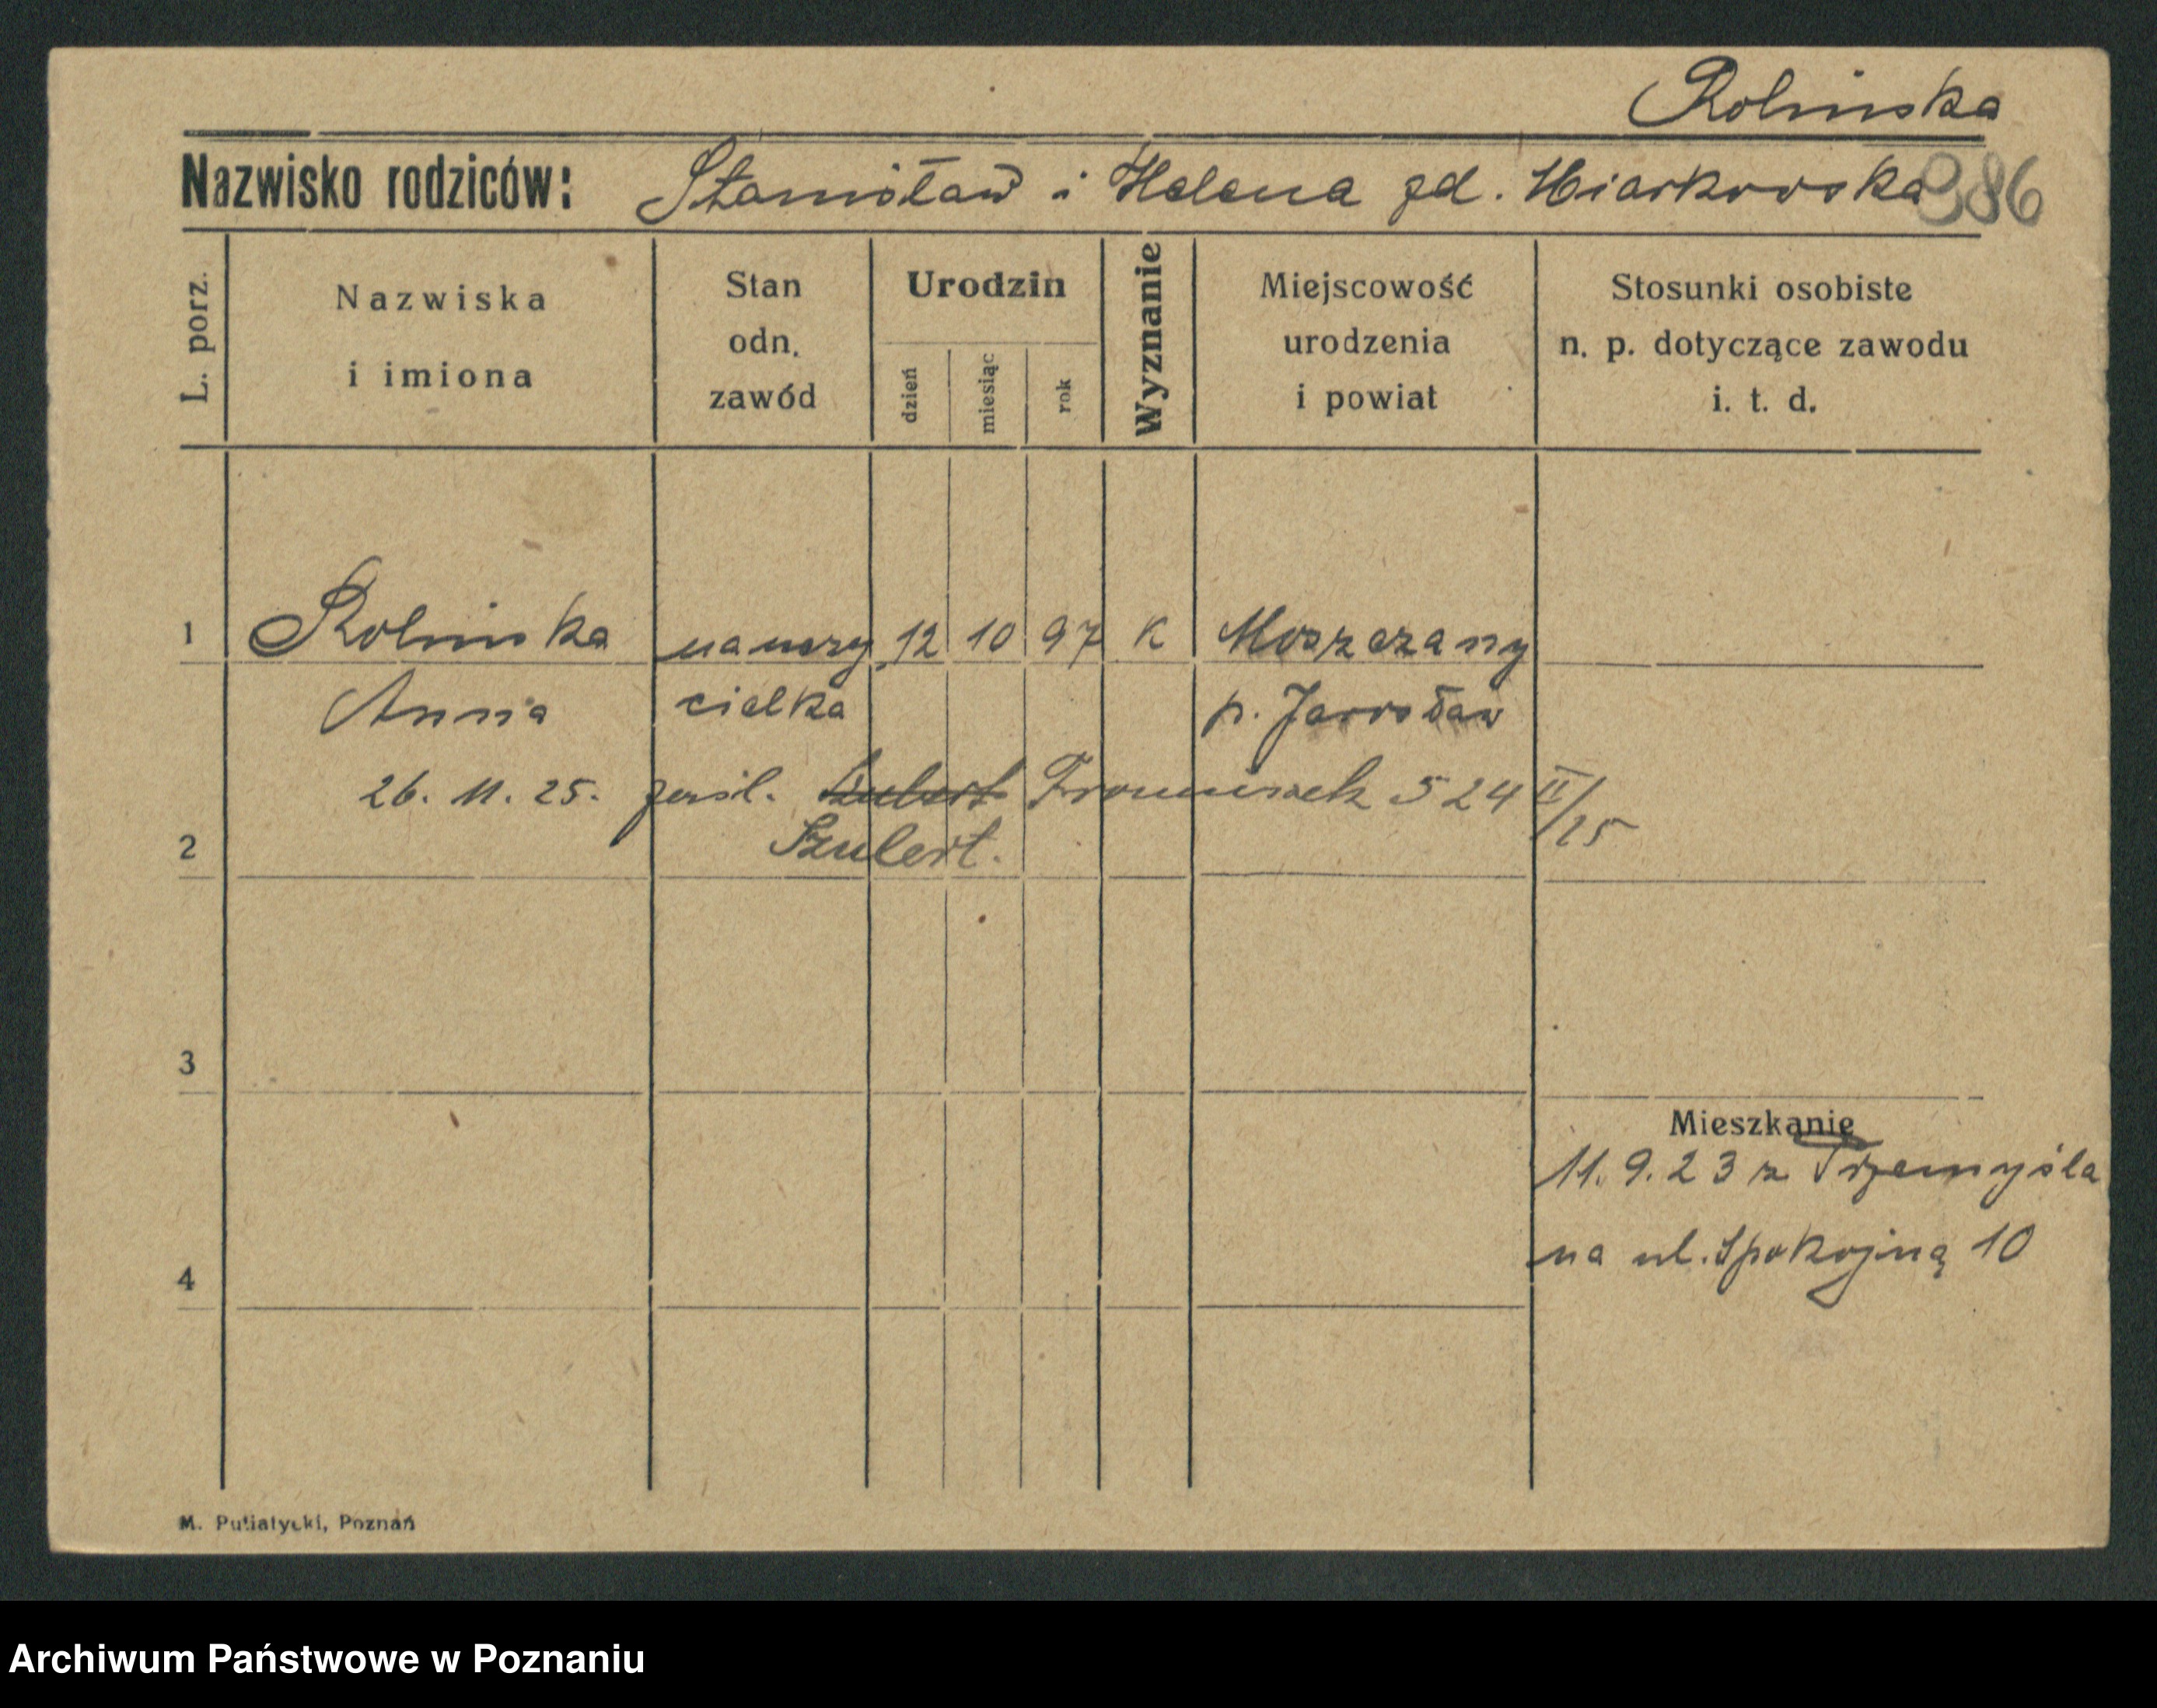 Rolinska
Nazwisko rodziców: Stanisław i Helena zd. Hiarkowska 386
L. porz.
Nazwiska
i imiona
Stan
odn.
zawód
Urodzin
dzień
miesiąc
rok
Wyznanie
Miejscowość
urodzenia
i powiat
Stosunki osobiste
n. p. dotyczące zawodu
i. t. d.
1 Rolinska nauczy 12 10 97 K Moszczany
Anna cielka p. Jarosław
26. 11. 25. zaśl. Franciszek 524 II/25
2 Szulert.
3
Mieszkanie
11. 9. 23 z Przemyśla
na ul. Spokojną 10
4
M. Putiatycki, Poznań
Archiwum Państwowe w Poznaniu